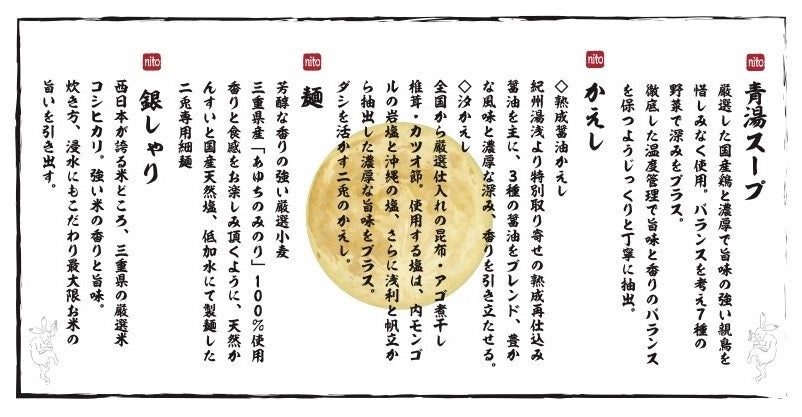 nito
青湯スープ
厳選した国産鶏と濃厚で旨味の強い親鳥を
惜しみなく使用。バランスを考え7種の
野菜で深みをプラス。
徹底した温度管理で旨味と香りのバランス
を保つようじっくりと丁寧に抽出。
nito
かえし
◇熟成醤油かえし
紀州湯浅より特別取り寄せの熟成再仕込み
醤油を主に、3種の醤油をブレンド、豊か
な風味と濃厚な深み、香りを引き立たせる。
◇汐かえし
全国から厳選仕入れの昆布・アゴ煮干し
椎茸・カツオ節。使用する塩は、内モンゴ
ルの岩塩と沖縄の塩、さらに浅利と帆立か
ら抽出した濃厚な旨味をプラス。
ダシを活かす二兎のかえし。
nito
麺
芳醇な香りの強い厳選小麦
三重県産「あゆちのみのり」100%使用
香りと食感をお楽しみ頂くように、天然か
んすいと国産天然塩、低加水にて製麺した
二兎専用細麺
nito
銀しゃり
西日本が誇る米ところ、三重県の厳選米
コシヒカリ。強い米の香りと旨味。
炊き方、浸水にもこだわり最大限お米の
旨いを引き出す。